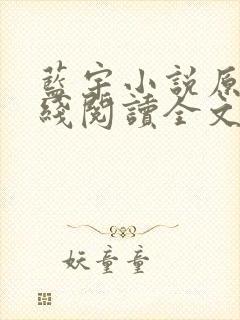 藍宇小說原
綫閱讀全文
妖童童